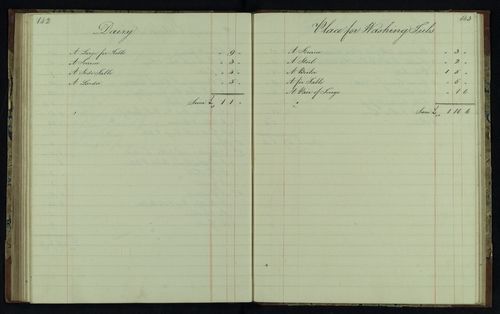 142
Dairy
A Large fir Table - 9 -
A Screen - 3 -
A Side Table - 4 -
A Ladder - 5 -
Sum £ 1 1 -
143
Place for Washing Tubs
A Screen - 3 -
A Stool - 2 -
A Boiler 1 5 -
A fir Table - 5 -
A Pair of Tongs - 1 6
Sum £ 1 16 6